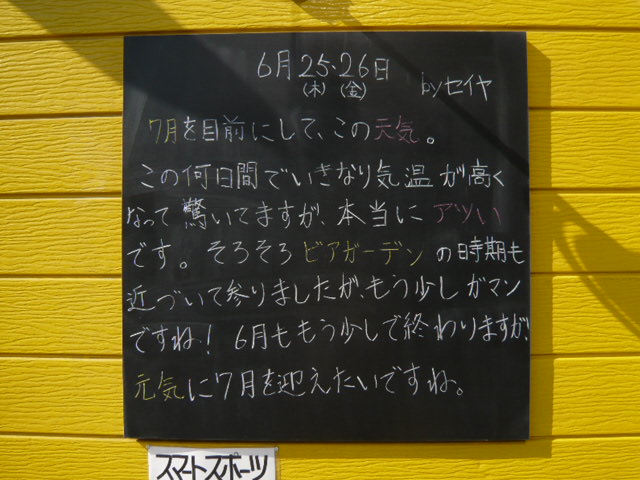 6月25・26日
(木) (金)
byセイヤ
7月を目前にして、この天気。
この何日間でいきなり気温が高く
なって驚いてますが、本当にアツい
です。そろそろビアガーデンの時期も
近づいて参りましたが、もう少しガマン
ですね！6月ももう少しで終わりますが、
元気に7月を迎えたいですね。
スマートスポーツ